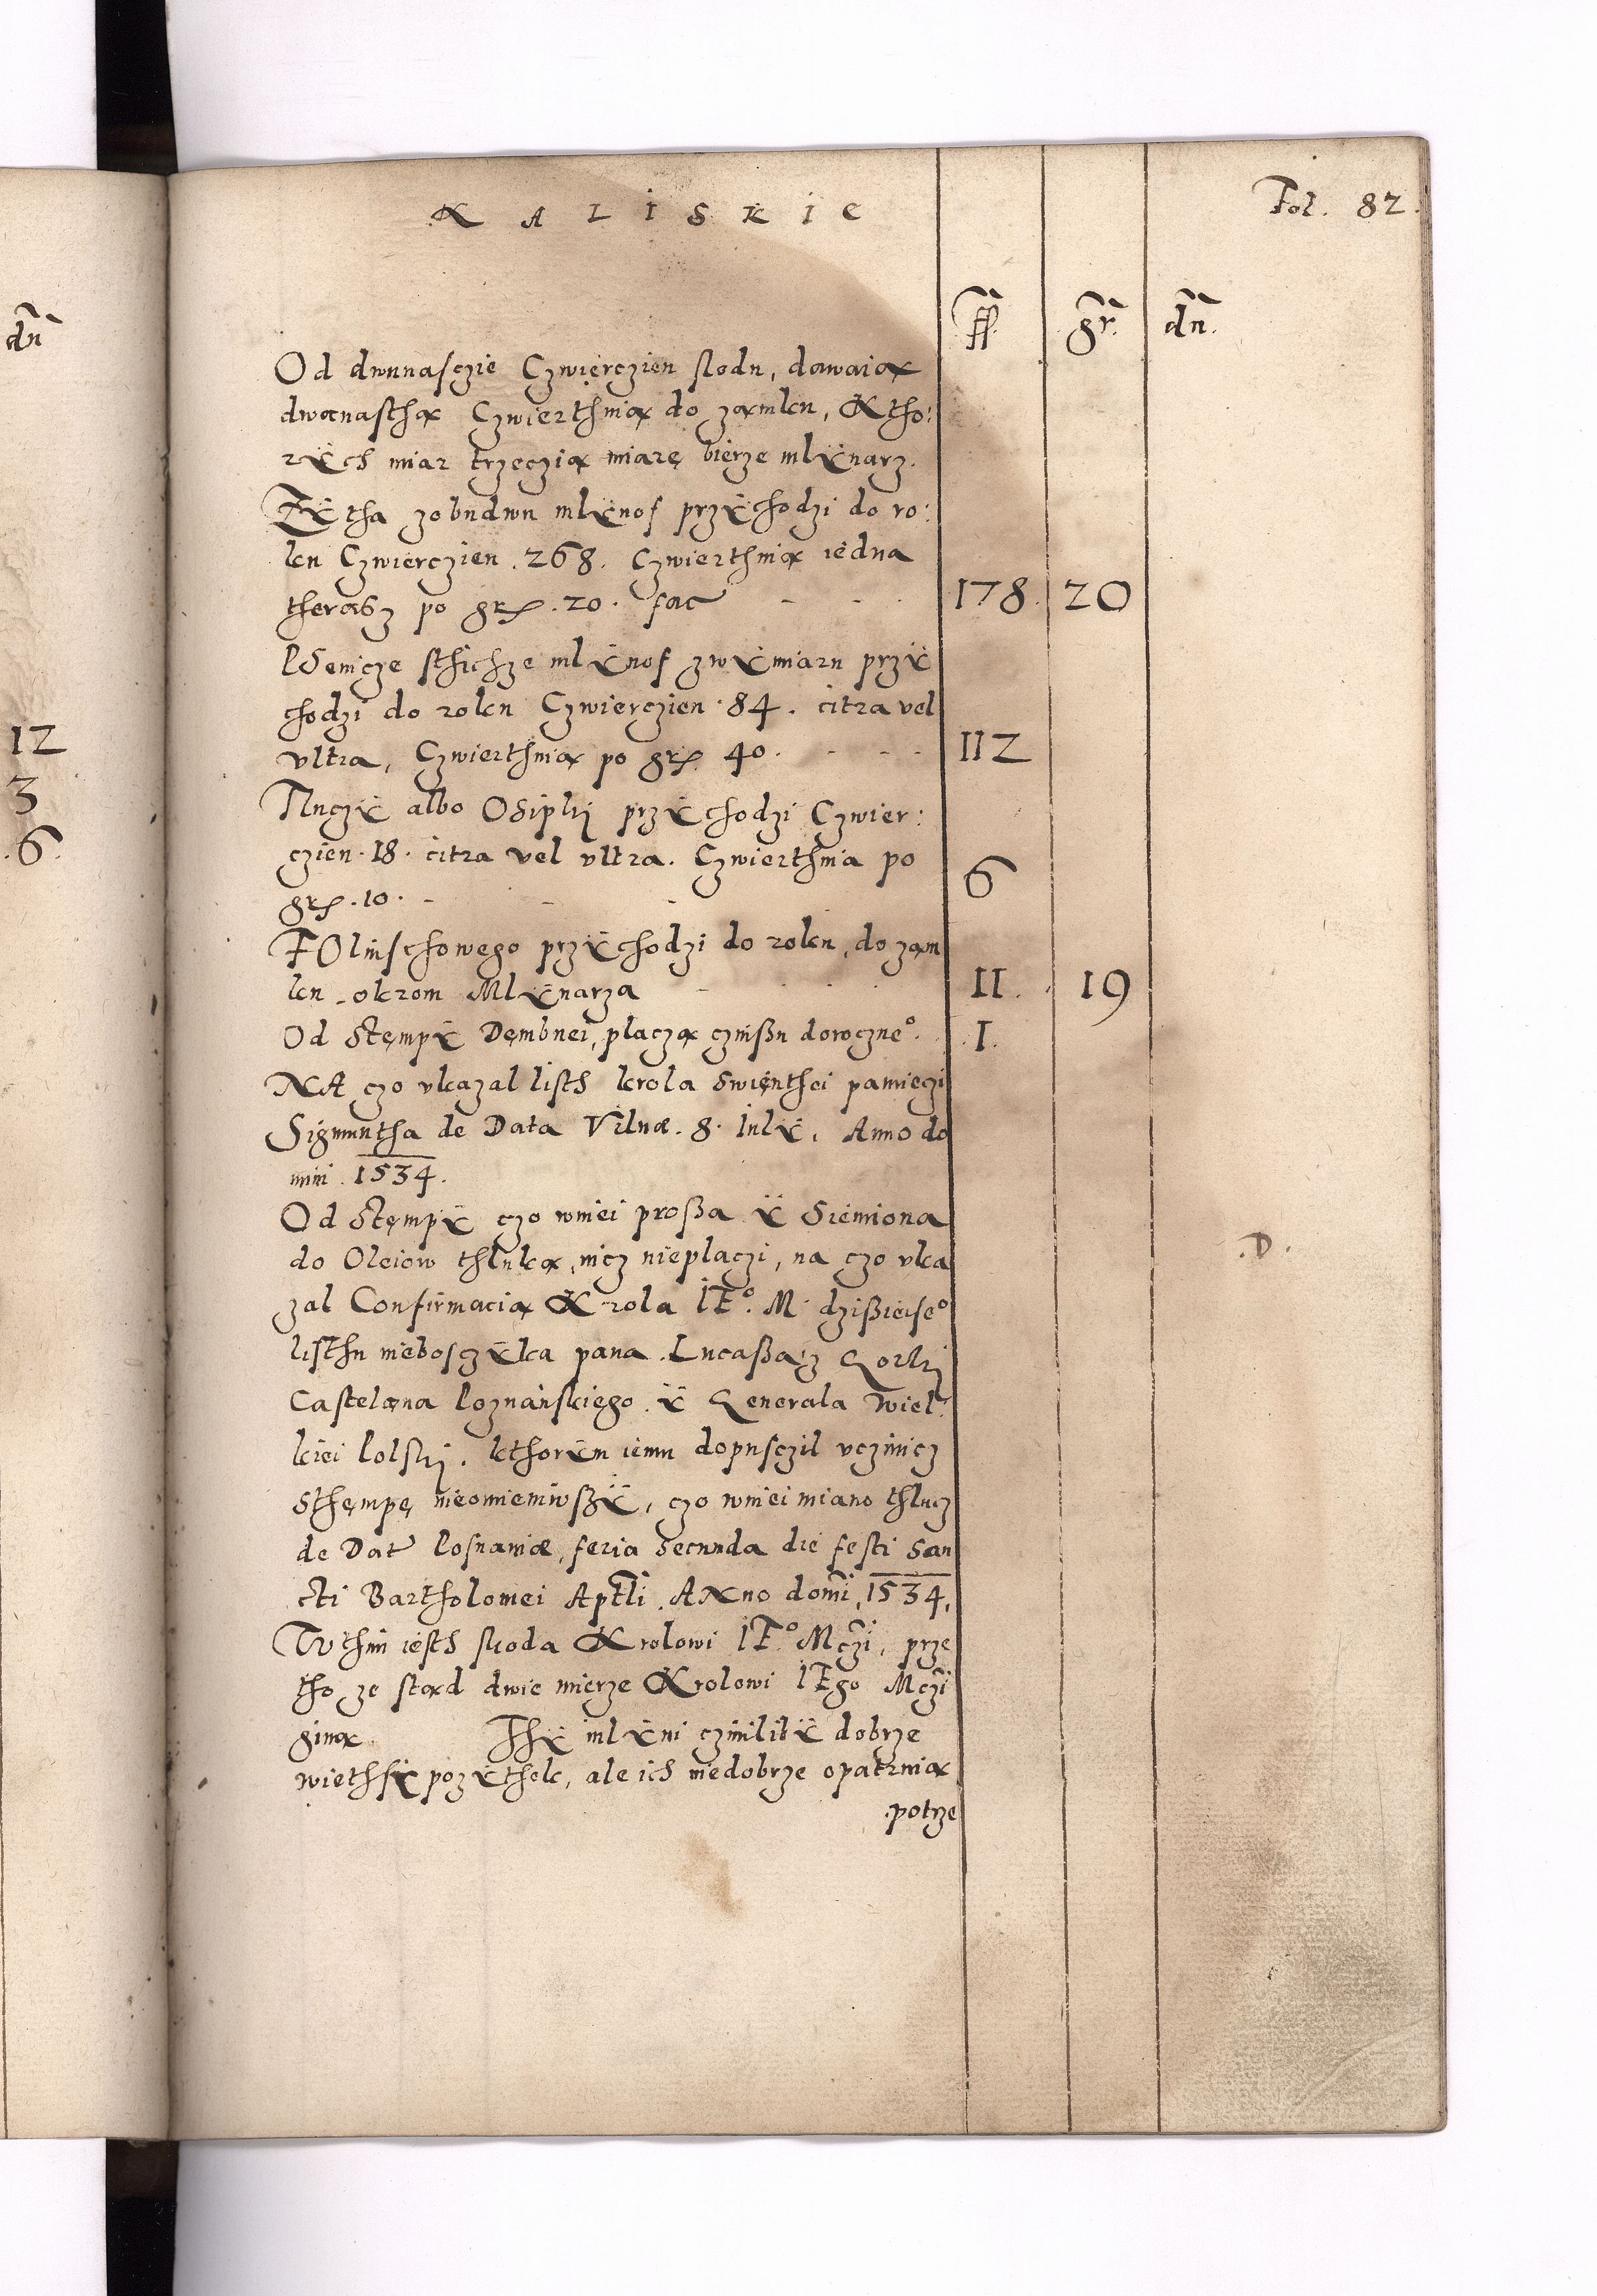 KALISKIE
Fol. 82.
ff. gr. dn.
dn
Od dwunasczie Czwierczien slodu, dawaią
dwanasthą Czwierthnią do zamku, Ktho:
rÿch miar trzeczią miarę bierze mlÿnarz.
Zÿtha zobudwu mlÿnof przÿchodzi do ro:
ku Czwierczien . 268. Czwierthnią iedna
therasz po gr. 20. fac - - . 178. 20
Psenicze sthichze mlÿnof zwÿmiaru przÿ
chodzi do roku Czwierczien . 84 . citra vel
vltra, Czwierthnią po gr. 40. - - - 112
12
3
.6.
Mączÿ albo Osipki przÿchodzi Czwier:
czien . 18 . citra vel vltra. Czwierthnia po
gr. 10. - - - 6
FOluschowego przÿchodzi do roku, do zam
ku . okrom Mlÿnarza - . . . 11. 19
Od Stępÿ Dembnei, placzą czinßu doroczne°. .I.
NA czo vkazal listh krola Swięthei pamieczi
Sigmuntha de Data Vilnæ . 8 . Iulÿ, Anno do
mini . 1534.
Od Stępÿ czo wniei proßa ÿ Siemiona
do Oleiow thluką, nicz nieplaczi, na czo vka
zal Confirmacią Krola IE°. M. dzißieise°
listhu nieboszczÿka pana . Lucaßa z Gorki
Castelana Poznanskiego . ÿ Generala Wiel:
kiei Polski . kthorÿm iemu dopusczil vczinicz
Sthępę nieomieniwßÿ, czo wniei miano thlucz
de Dat Posnaniæ, feria Secunda die festi San
cti Bartholomei Aptli . ANno domi, 1534,
TV thim iesth skoda Krolowi IE.° Mczi, prze
tho ze stąd dwie mierze Krolowi IEgo Mczi
giną. Thÿ mlÿni czinilibÿ dobrze
wiethsÿ pozÿthek, ale ich niedobrze opatrnią
.potrze
.D.